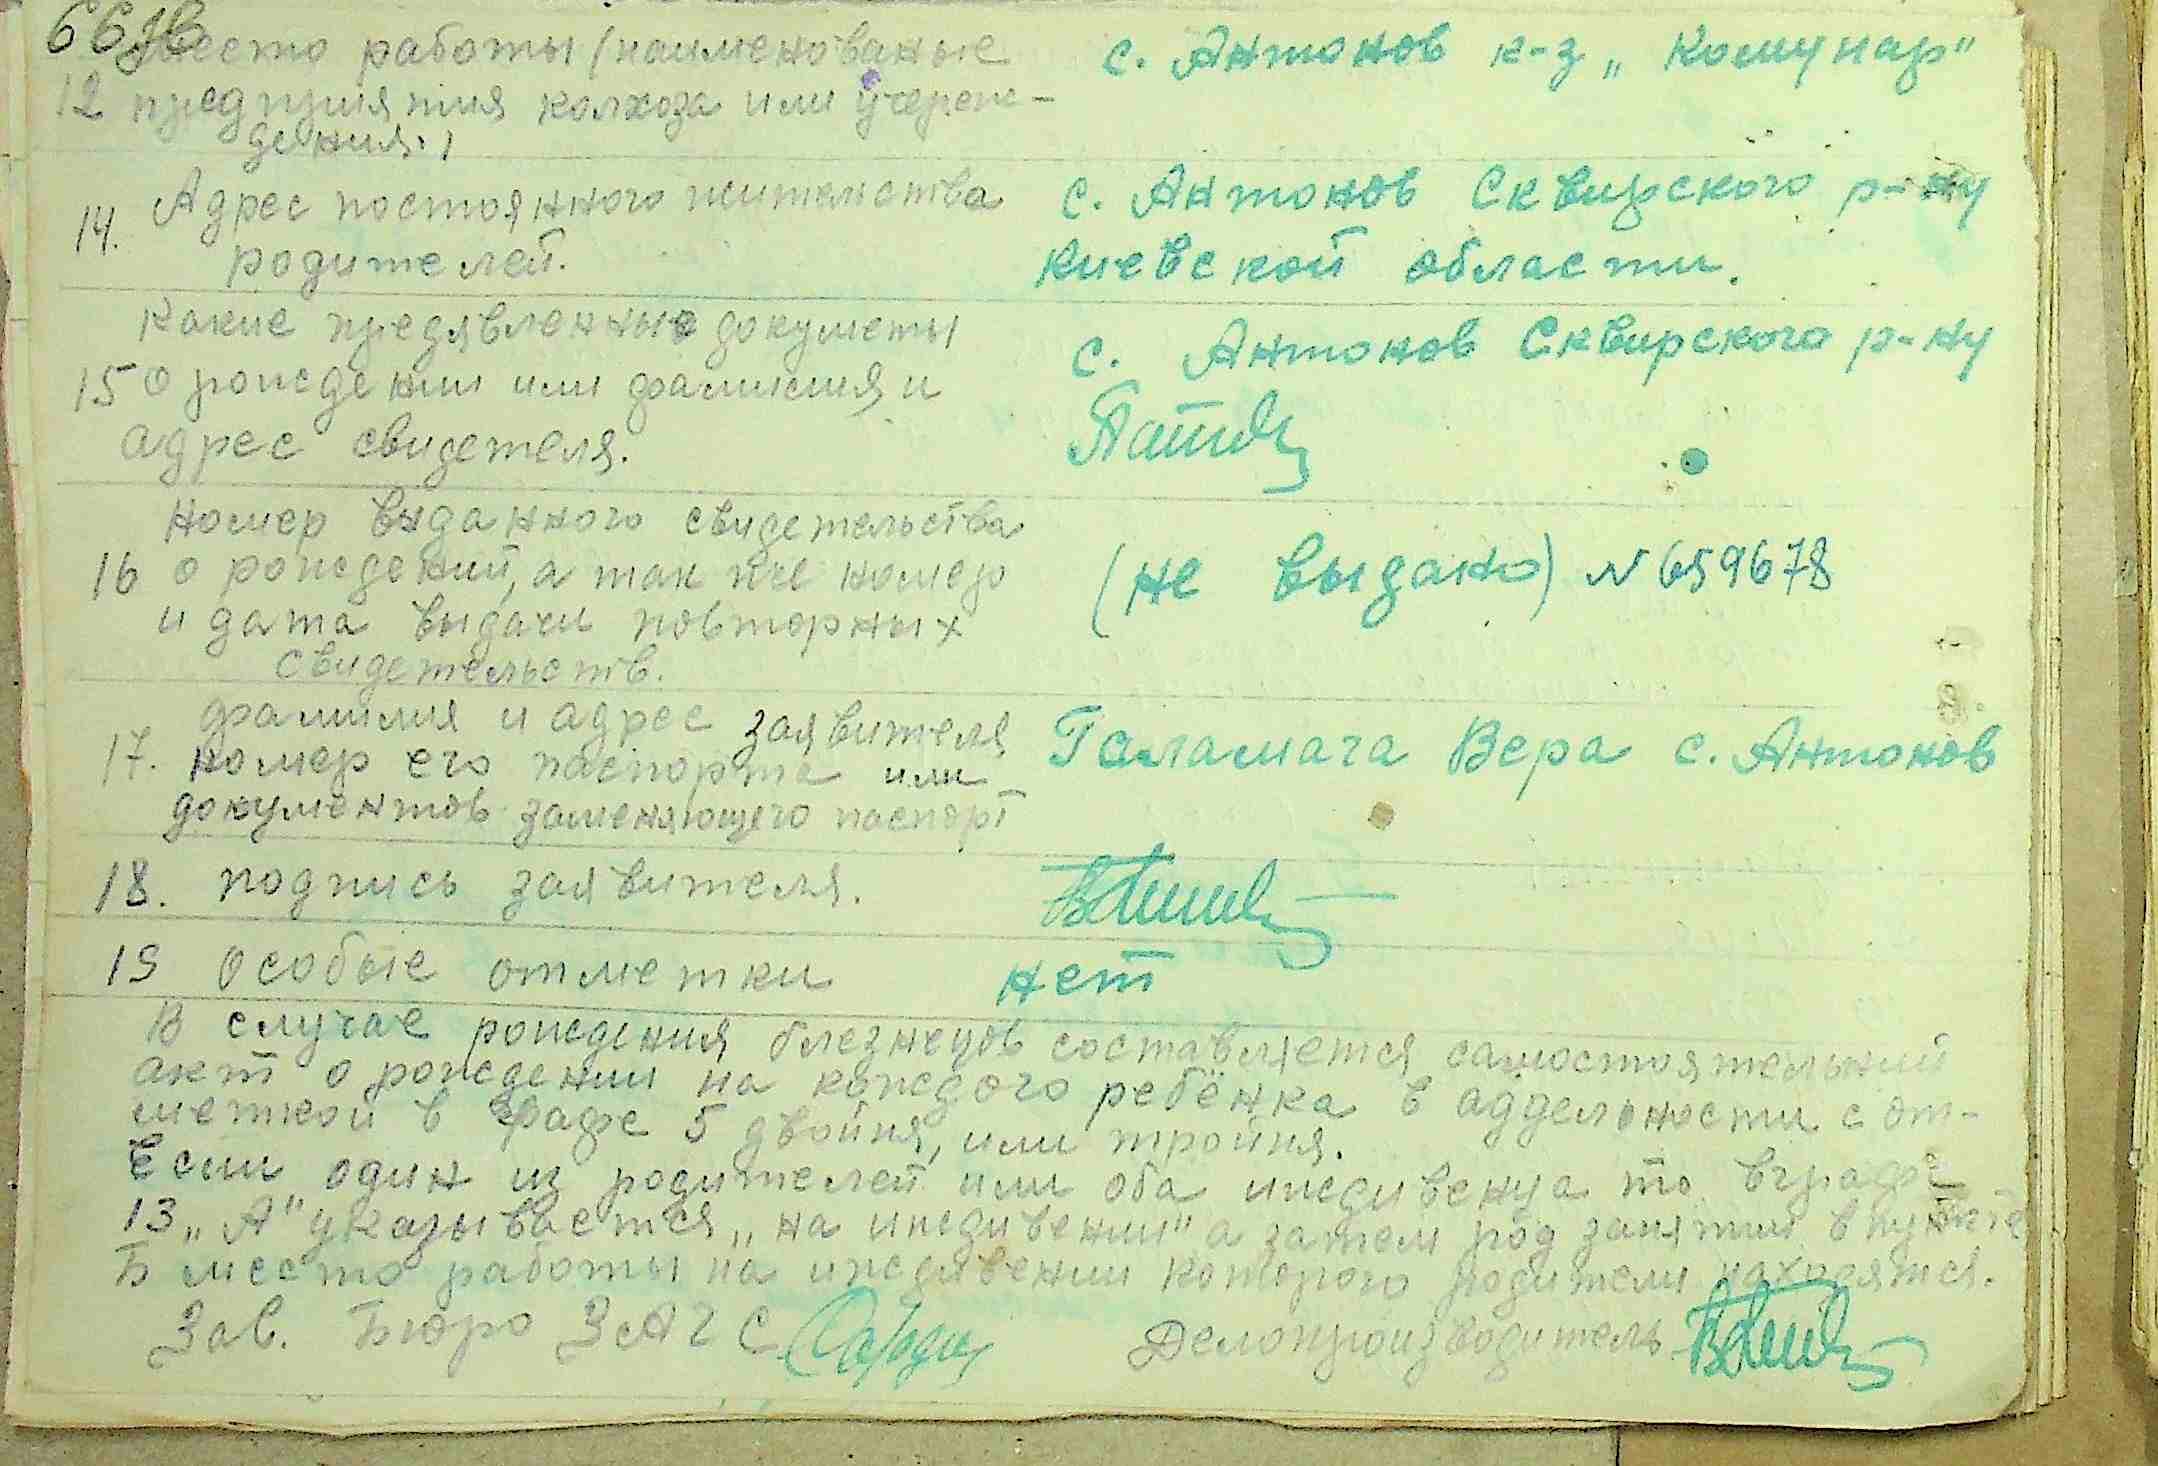 66зв
место работы (наименованые с. Антонов к-з „Комунар"
12 предприятия колхоза или учереж-
дения.)
Адрес постоянного жительства с. Антонов Сквирского р-ну
14. родителей. Киевской области.
Какие предявленные документы с. Антонов Сквирского р-ну
15 о рождении или фамилия и
адрес свидетеля.
Номер выданного свидетельства
16 о рождений, а так же номер (не выдано) N 659678
и дата выдачи повторных
свидетельств.
фамилия и адрес заявителя Галамага Вера с. Антонов
17. номер его паспорта или
документов заменяющего паспорт
18. подпись заявителя.
19 Особые отметки нет
В случае рождения блезнецов составляется самостоятельний
акт о рождении на каждого ребёнка в аддельности с от-
меткой в графе 5 двойня, или тройня.
Если один из родителей или оба иждивенца то в графе
13 „А" указывается „на иждивении" а затем род занятии в пункте
Б место работы на иждивении которого родители находятся.
Зав. Бюро ЗАГС Делопроизводитель